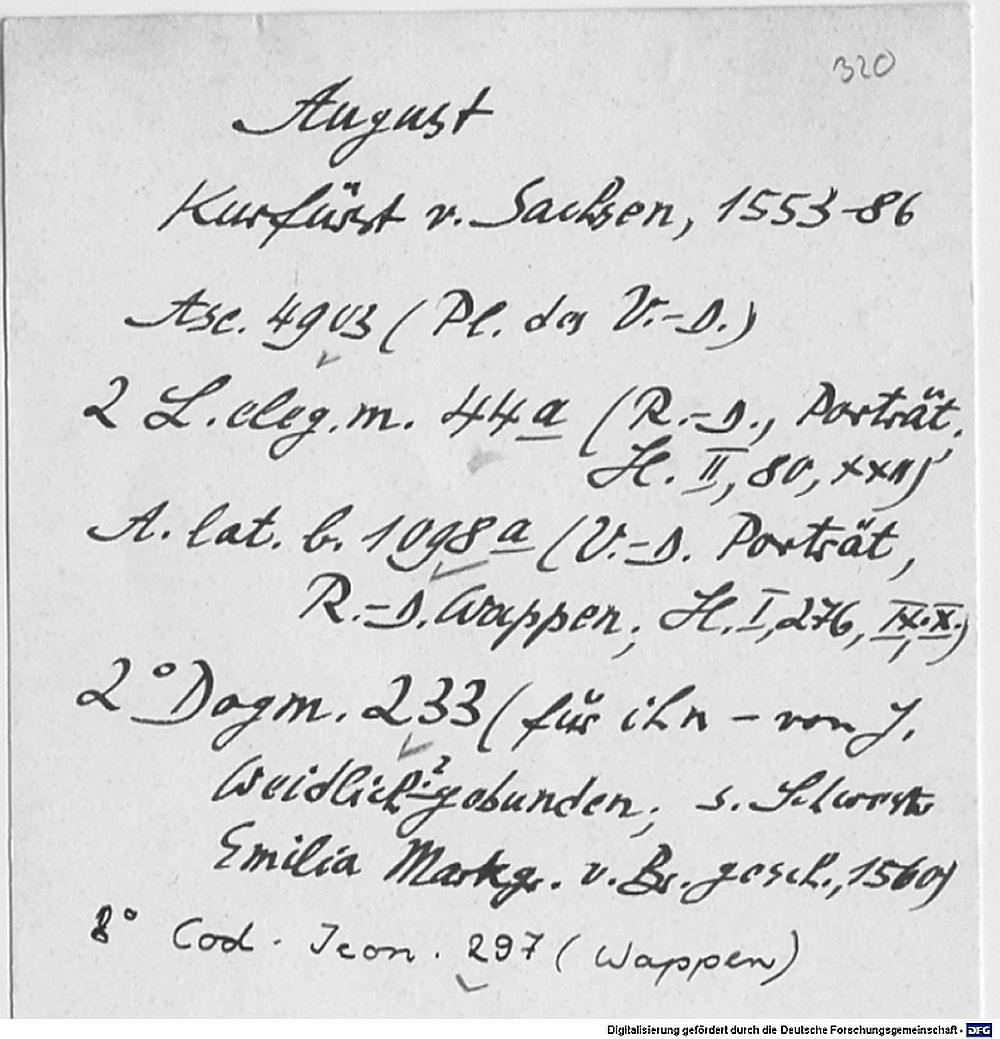 320
August
Kurfürst v. Sachsen, 1553-86
Asc. 4903 (Pl. des V.-D.)
2 L. eleg. m. 44a (R.-D., Porträt,
H. II, 80, XXII)
A. lat. b. 1098a (V.-D. Porträt,
R.-D. Wappen, H. I, 276, IX, X.)
2° Dogm. 233 (für ihn – von J.
Weidlich? gebunden, s. Schwester
Emilia Markgr. v. Br. gesch., 1560)
8° Cod. Icon. 297 (Wappen)
Digitalisierung gefördert durch die Deutsche Forschungsgemeinschaft - DFG